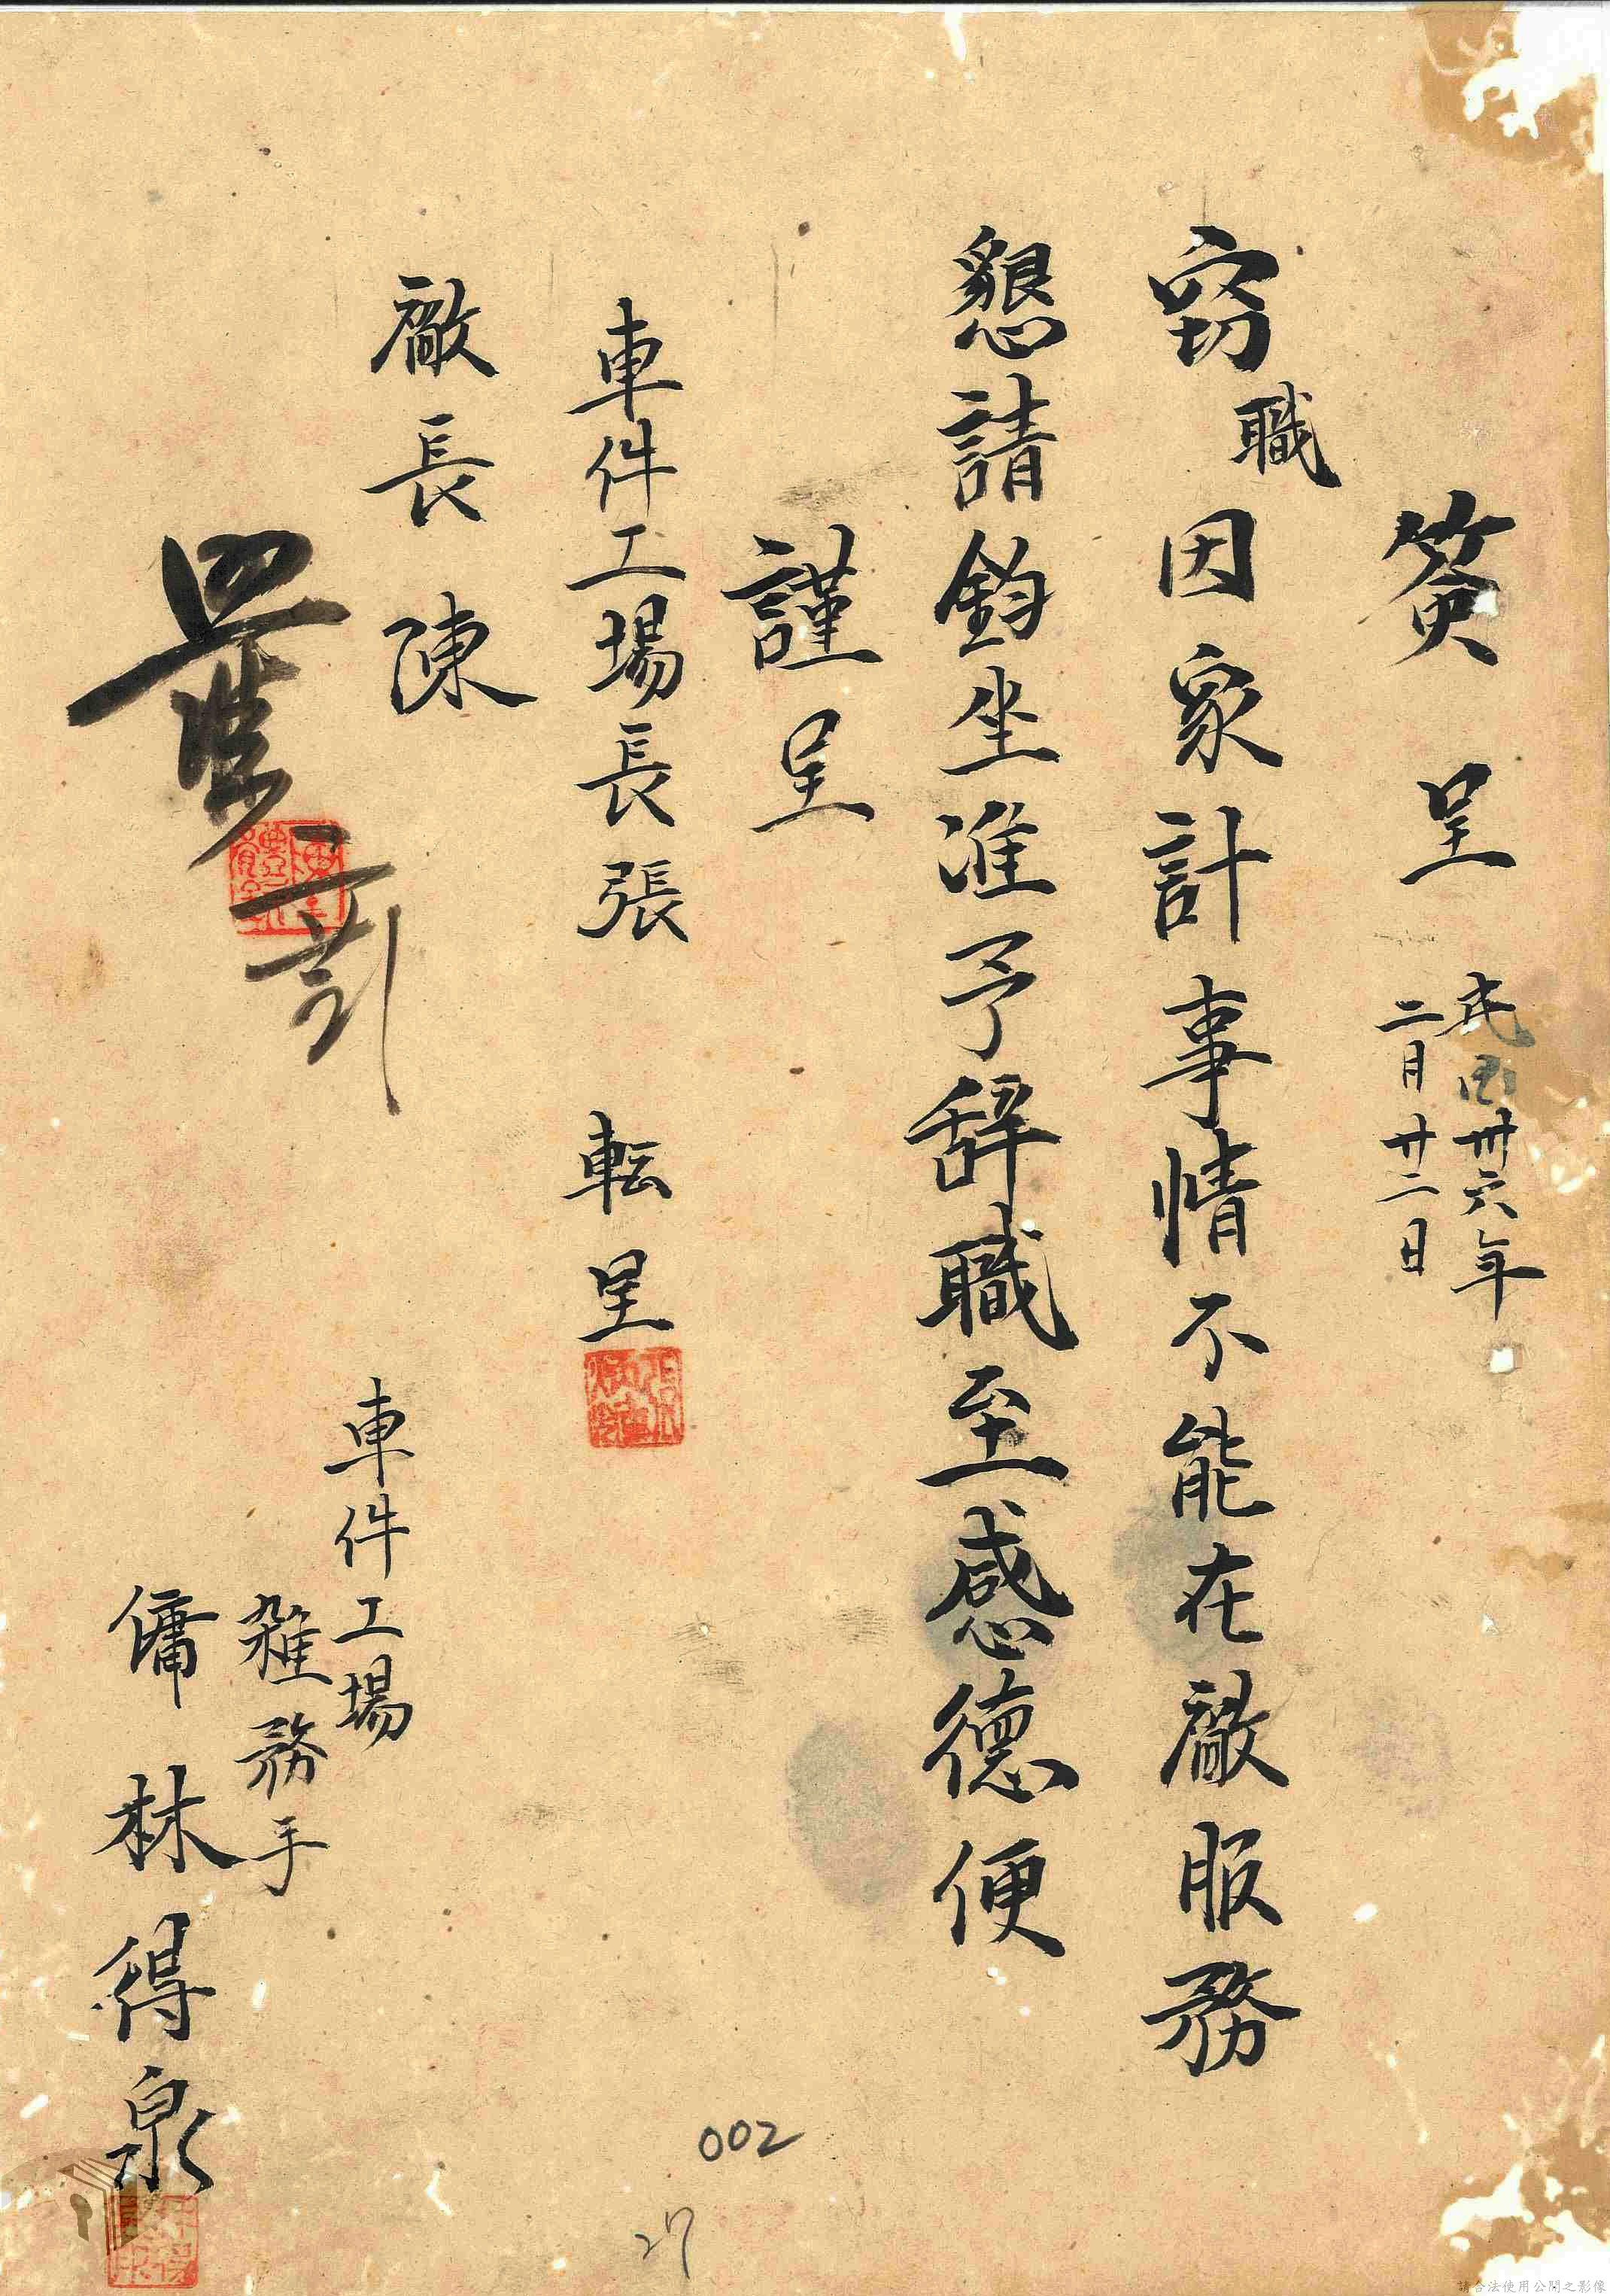 簽呈 民國卅六年
二月廿二日
窃職因家計事情不能在厰服務
懇請鈞坐准予辞職至感德便
謹呈
車件工場長張 転呈
厰長陳
車件工場
雑務手
傭 林得泉
002
27
請合法使用公開之影像